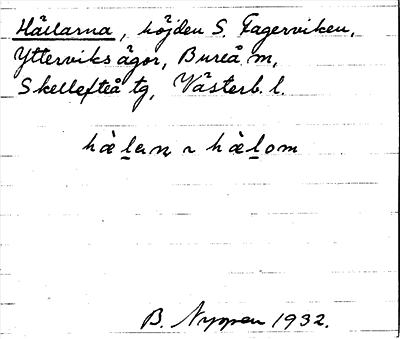 Hällarna, höjden S. Fagerviken,
Ytterviks ägor, Bureå m,
Skellefteå tg, Västerb. l.
hàḻaṇ ~ hàḻom
B. Nyman 1932.